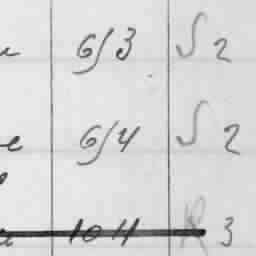 6/3 S 2
e 6/4 S 2
a 104 R 3